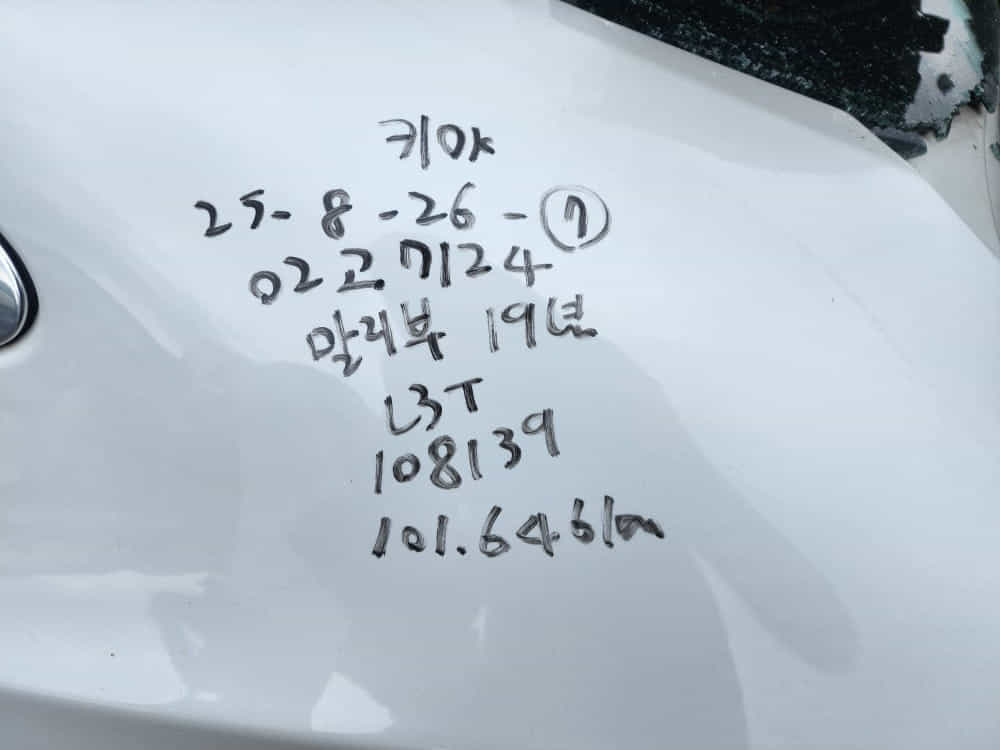 키야
25-8-26-⑦
02고7124
말리부 19년
L3T
108139
101.646km